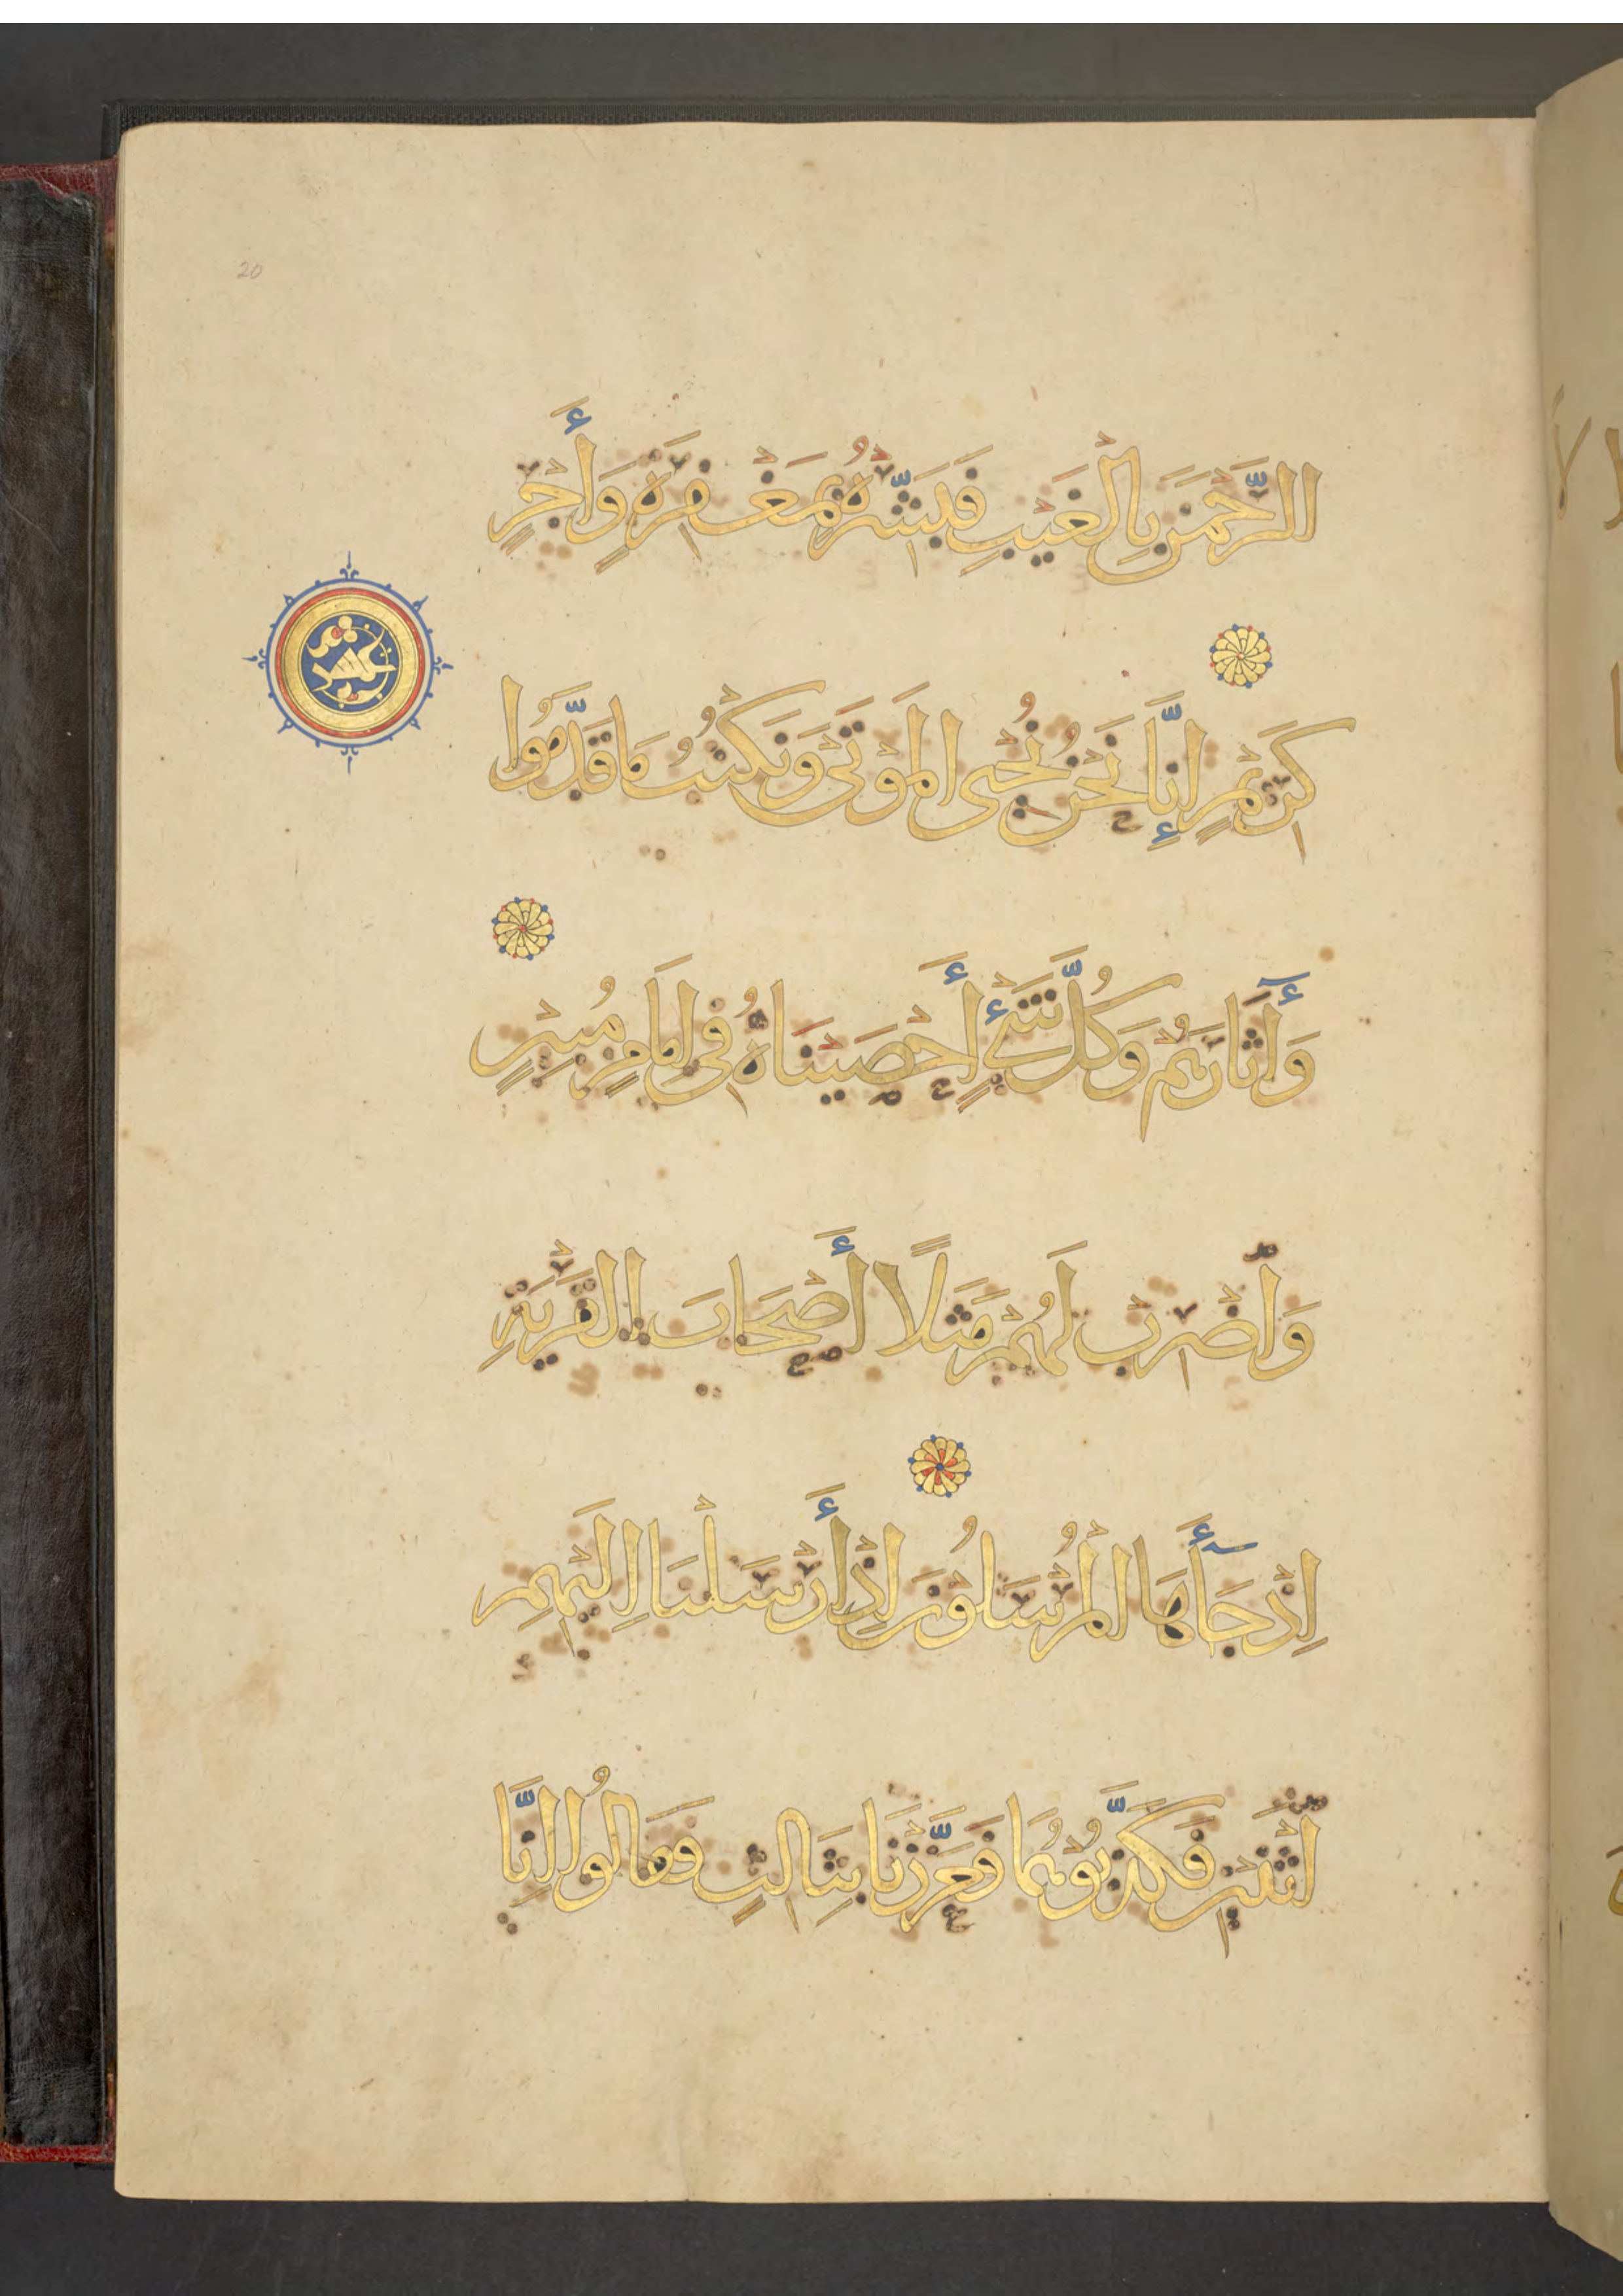 20
الرَّحْمَنَ بِالْغَيْبِ فَبَشِّرْهُ بِمَغْفِرَةٍ وَأَجْرٍ
عشر
كَرِيْمٍ إِنَّا نَحْنُ نُحْىِ الْمَوْتَى وَنَكْتُبُ مَا قَدَّمُوا
وَأَثَارَهُمْ وَكُلَّ شَىْءٍ أَحْصَيْنَاهُ فِى إِمَامٍ مُبِيْنٍ
وَاضْرِبْ لَهُمْ مَثَلًا أَصْحَابَ الْقَرْيَةِ
إِذْ جَآءَهَا الْمُرْسَلُوْنَ إِذْ أَرْسَلْنَا إِلَيْهِمِ
اثْنَيْنِ فَكَذَّبُوْهُمَا فَعَزَّزْنَا بِثَالِثٍ فَقَالُوا إِنَّا